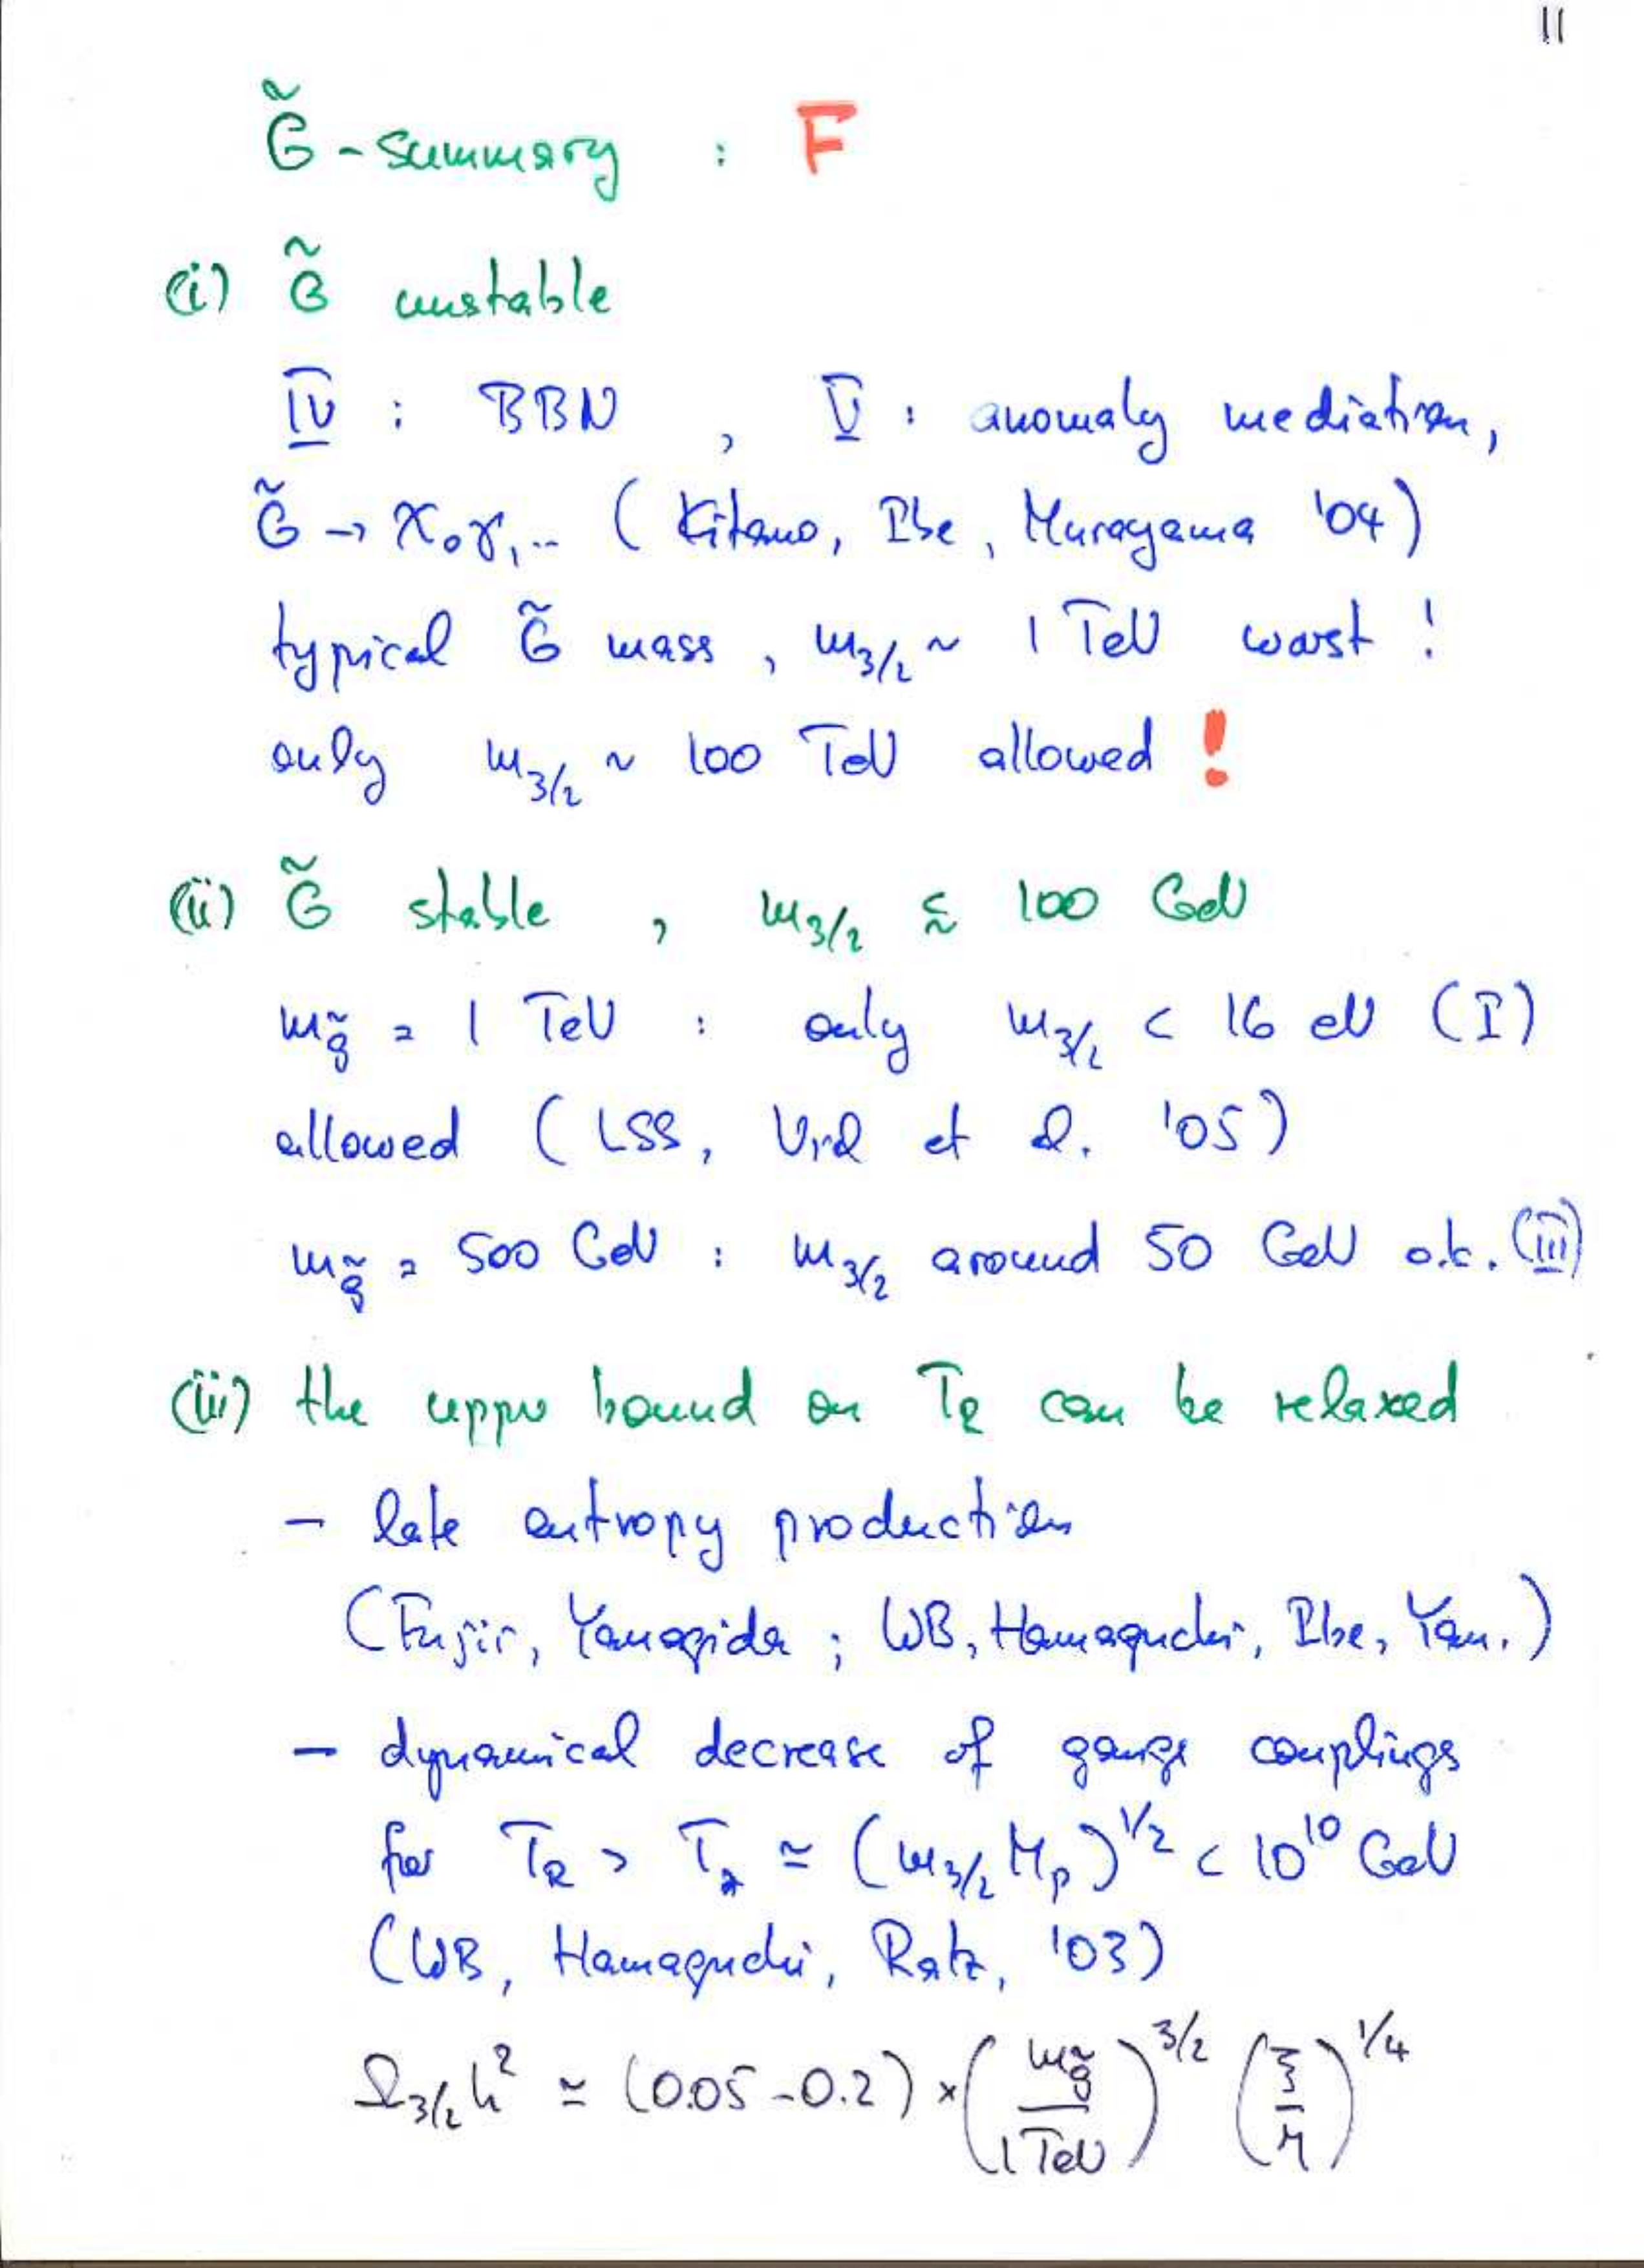 11
G̃ - summary : F
(i) G̃ unstable
IV : BBN , V : anomaly mediation,
G̃ → χ₀γ,.. ( Kitano, Ibe, Murayama '04)
typical G̃ mass , m_{3/2} ~ 1 TeV worst !
only m_{3/2} ~ 100 TeV allowed !
(ii) G̃ stable , m_{3/2} ≲ 100 GeV
m_{g̃} = 1 TeV : only m_{3/2} < 16 eV (I)
allowed ( LSS, Viel et al. '05)
m_{g̃} = 500 GeV : m_{3/2} around 50 GeV o.k. (III)
(iii) the upper bound on T_R can be relaxed
- late entropy production
(Fujii, Yanagida ; WB, Hamaguchi, Ibe, Yan.)
- dynamical decrease of gauge couplings
for T_R > T_* ≃ (m_{3/2} M_P)^{1/2} < 10^{10} GeV
(WB, Hamaguchi, Ratz, '03)
Ω_{3/2} h² ≃ (0.05 - 0.2) × (m_{g̃} / 1 TeV)^{3/2} (ξ / η)^{1/4}